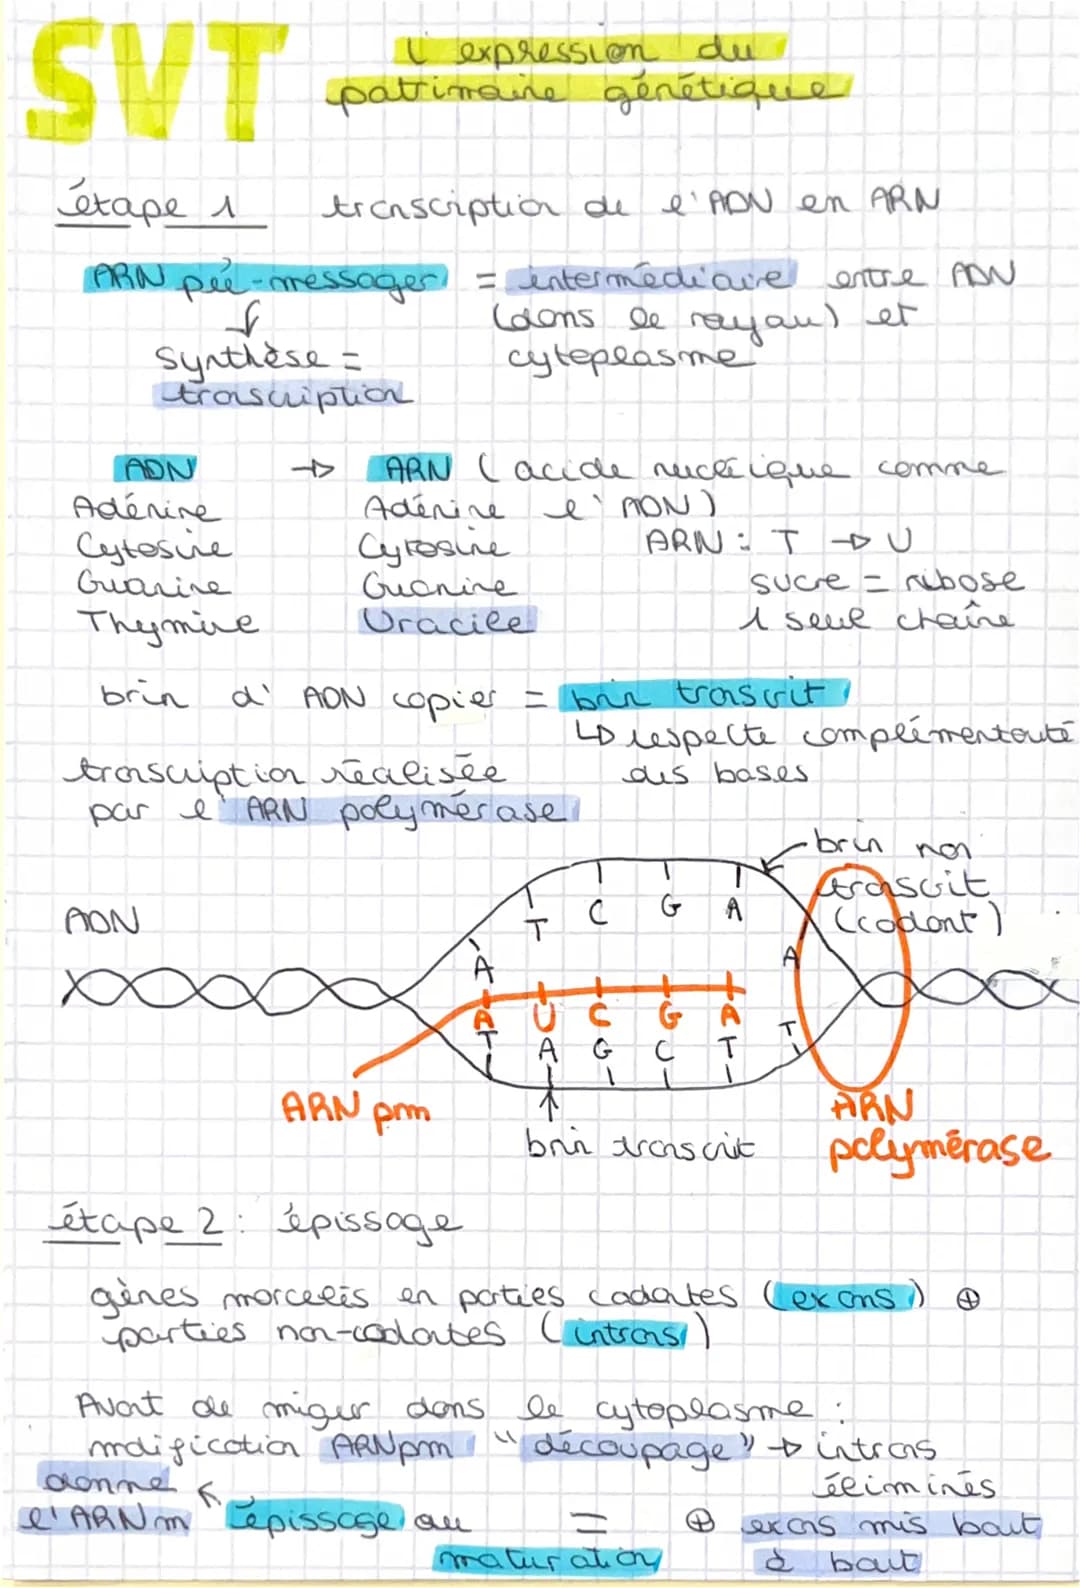 SVT
l'expression du
patrimoine génétique
étape 1 transcription de l'ADN en ARN
ARN pré-messager = intermédiaire entre ADN
(dans le noyau) et
synthèse = cytoplasme
transcription
ADN → ARN (acide nucléique comme
Adénine Adénine l'ADN)
Cytosine Cytosine ARN : T → U
Guanine Guanine sucre = ribose
Thymine Uracile 1 seul chaîne
brin d'ADN copier = brin transcrit
↳ respecte complémentarité
transcription réalisée des bases
par l'ARN polymérase
brin non
transcrit
(codant)
ADN
A T C G A A
A U C G A
T A G C T T
ARN pm
brin transcrit
ARN
polymérase
étape 2 : épissage
gènes morcelés en parties codantes (exons) ⊕
parties non-codantes (introns)
Avant de migrer dans le cytoplasme :
modification ARNpm "découpage" → introns
éliminés
donne
l'ARNm ↖ épissage ou = ⊕ exons mis bout
maturation à bout